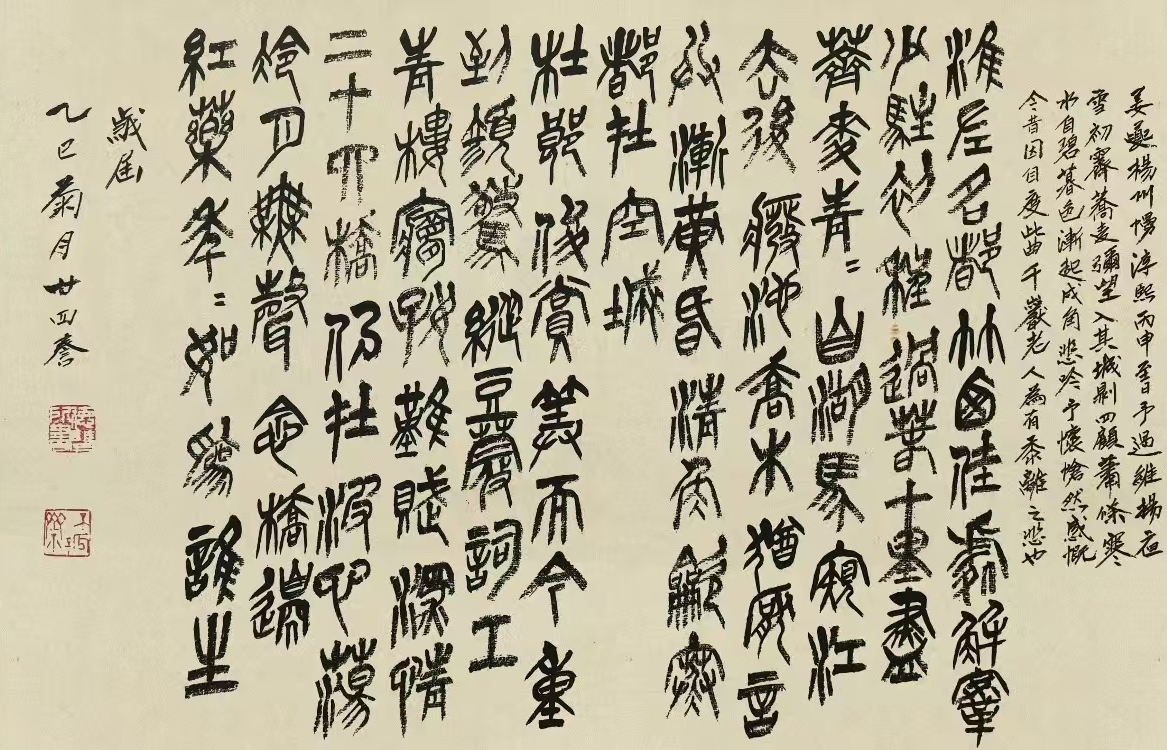 姜夔楊州慢 淳熙丙申至日予過維揚夜
雪初霽薺麥彌望入其城則四顧蕭條寒
水自碧暮色漸起戍角悲吟予懷愴然感慨
今昔因自度此曲千巖老人為有黍離之悲也
淮左名都竹西佳處解鞍
少駐初程過春十里盡
薺麥青〻自湖馬窺江
去後廢池喬木猶厭言
兵漸黃昏清角吹寒
都在空城
杜郎俊賞算而今重
到須驚縱豆蔻詞工
青樓夢好難賦深情
二十四橋仍在波心蕩
冷月無聲念橋邊
紅藥年〻知為誰生
歲屆
乙巳菊月廿四